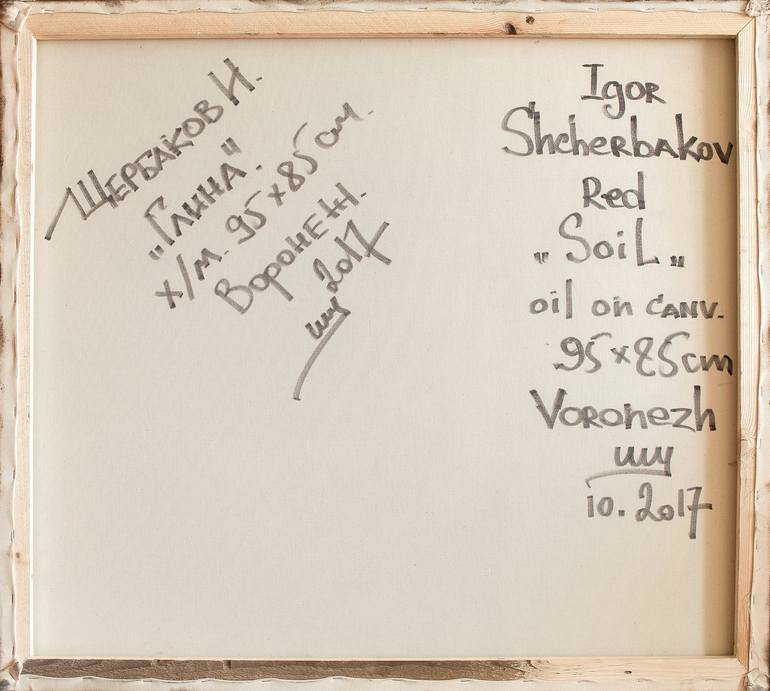 Щербаков И.
"Глина".
х/м. 95x85 см.
Воронеж.
2017
Igor
Shcherbakov
Red
„Soil„
oil on canv.
95x85cm
Voronezh
10.2017